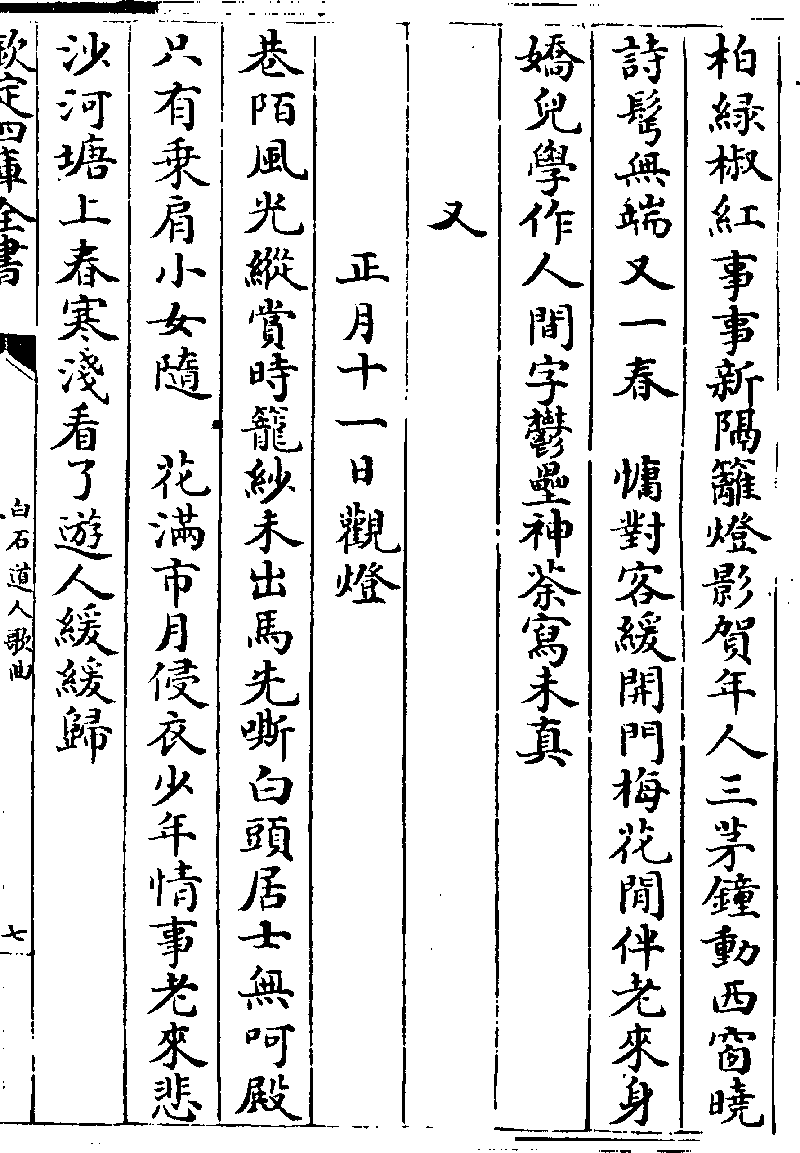 柏緑椒紅事事新隔籬燈影賀年人三茅鐘動西窗曉
詩鬂無端又一春　慵對客緩開門梅花閒伴老來身
嬌兒學作人間字鬱壘神荼寫未真
又
正月十一日觀燈
巷陌風光縱賞時籠紗未出馬先嘶白頭居士無呵殿
只有乗肩小女隨　花滿市月侵衣少年情事老來悲
沙河塘上春寒淺看了遊人緩緩歸
欽定四庫全書
白石道人歌曲
七